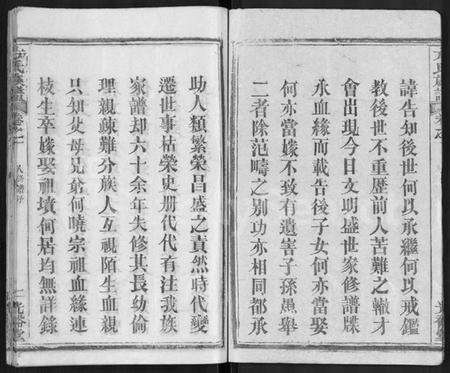 諱告知後世何以承繼何以戒鑑
教後世不重歷前人苦難之轍才
會出現今日文明盛世家修譜牒
永血緣而載告後子女何亦當娶
何亦當嫁不致有遺害子孫愚舉
二者除范疇之別功亦相同都承
助人類繁榮昌盛之責然時代變
遷世事枯榮史册代代有注我族
家譜却六十余年失修其長幼倫
理親疎難分族人互視陌生血親
只知父母兄弟何曉宗祖血緣連
枝生卒嫁娶祖墳何居均無詳錄